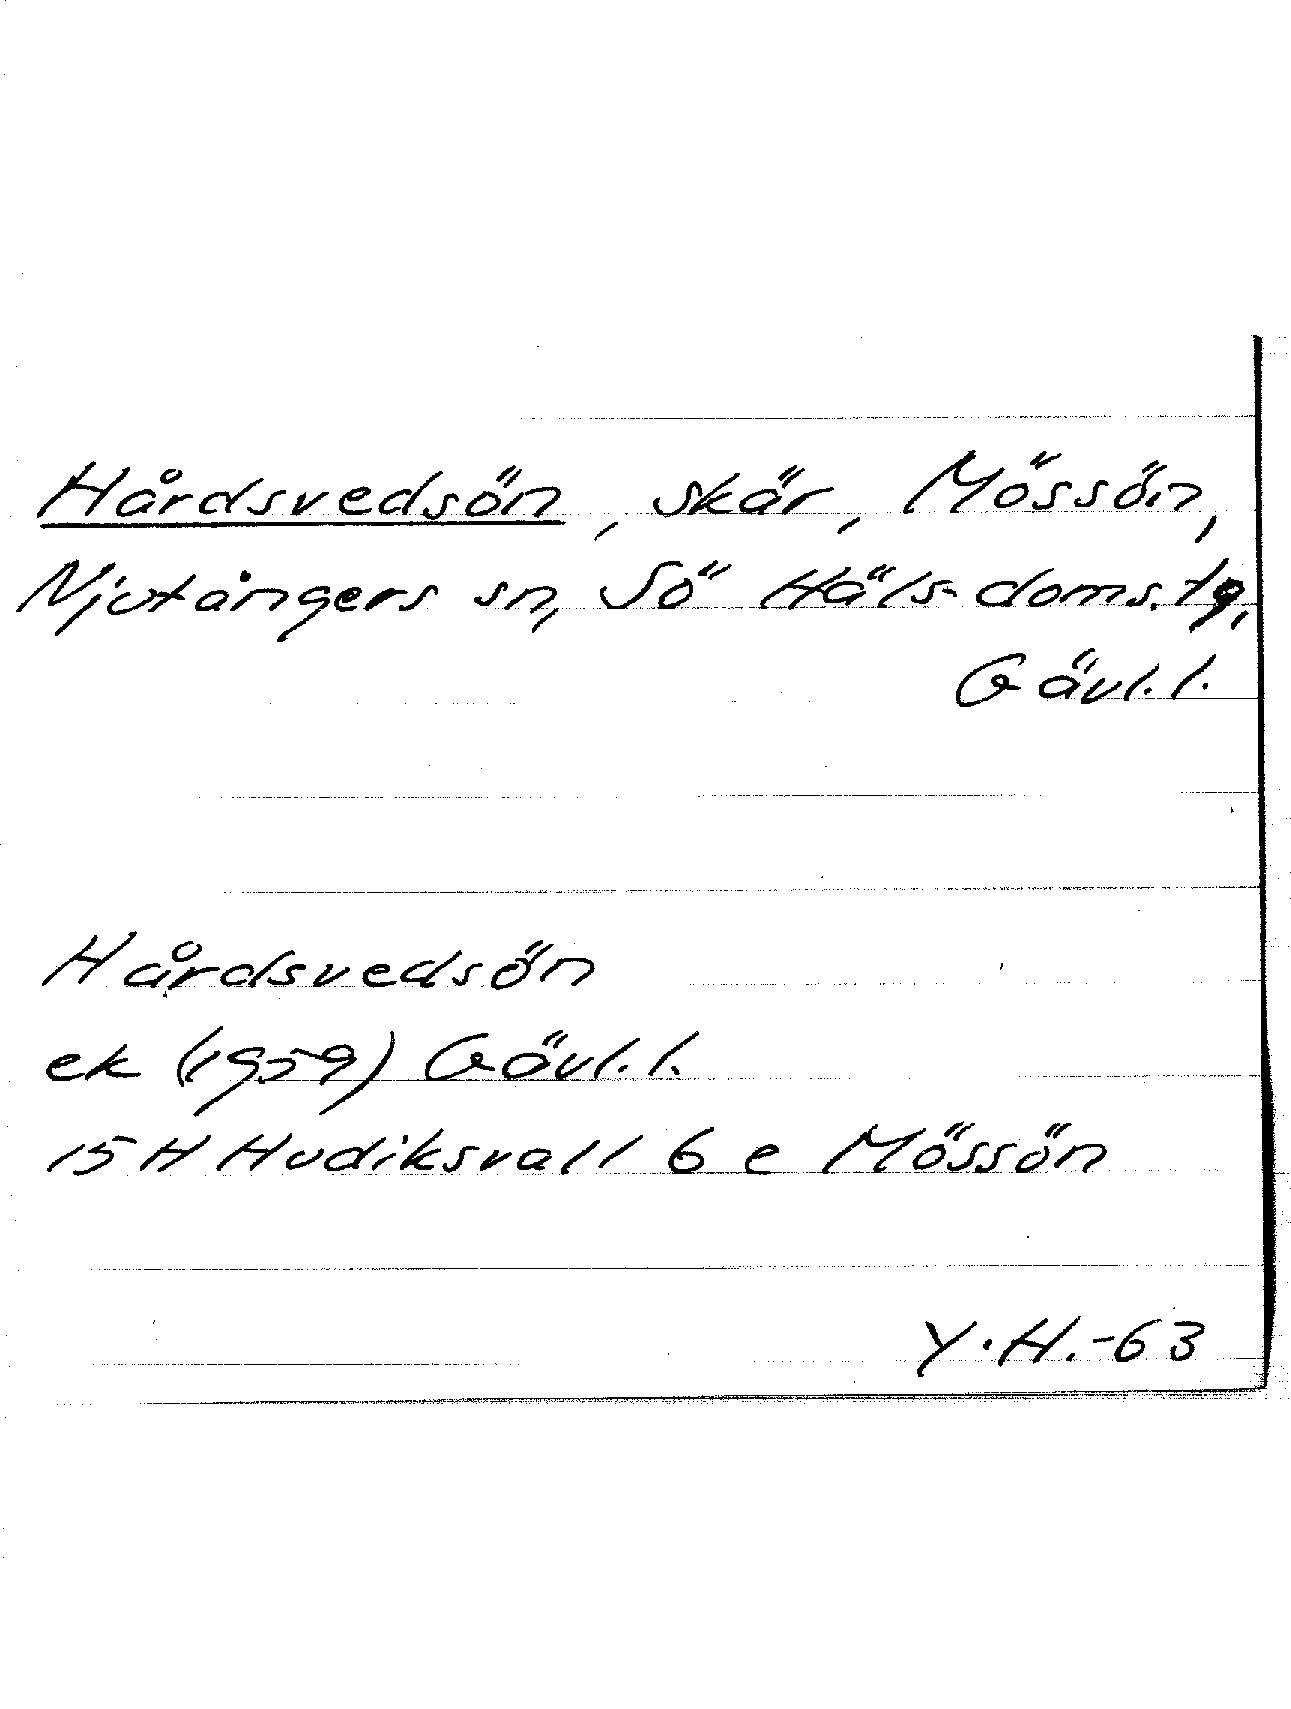 Hårdsvedsön, skär, Mössön,
Njutångers sn, Sö Häls. doms. tg,
Gävl. l.
Hårdsvedsön
ek (1959) Gävl. l.
15 H Hudiksvall 6 e Mössön
Y.H.-63